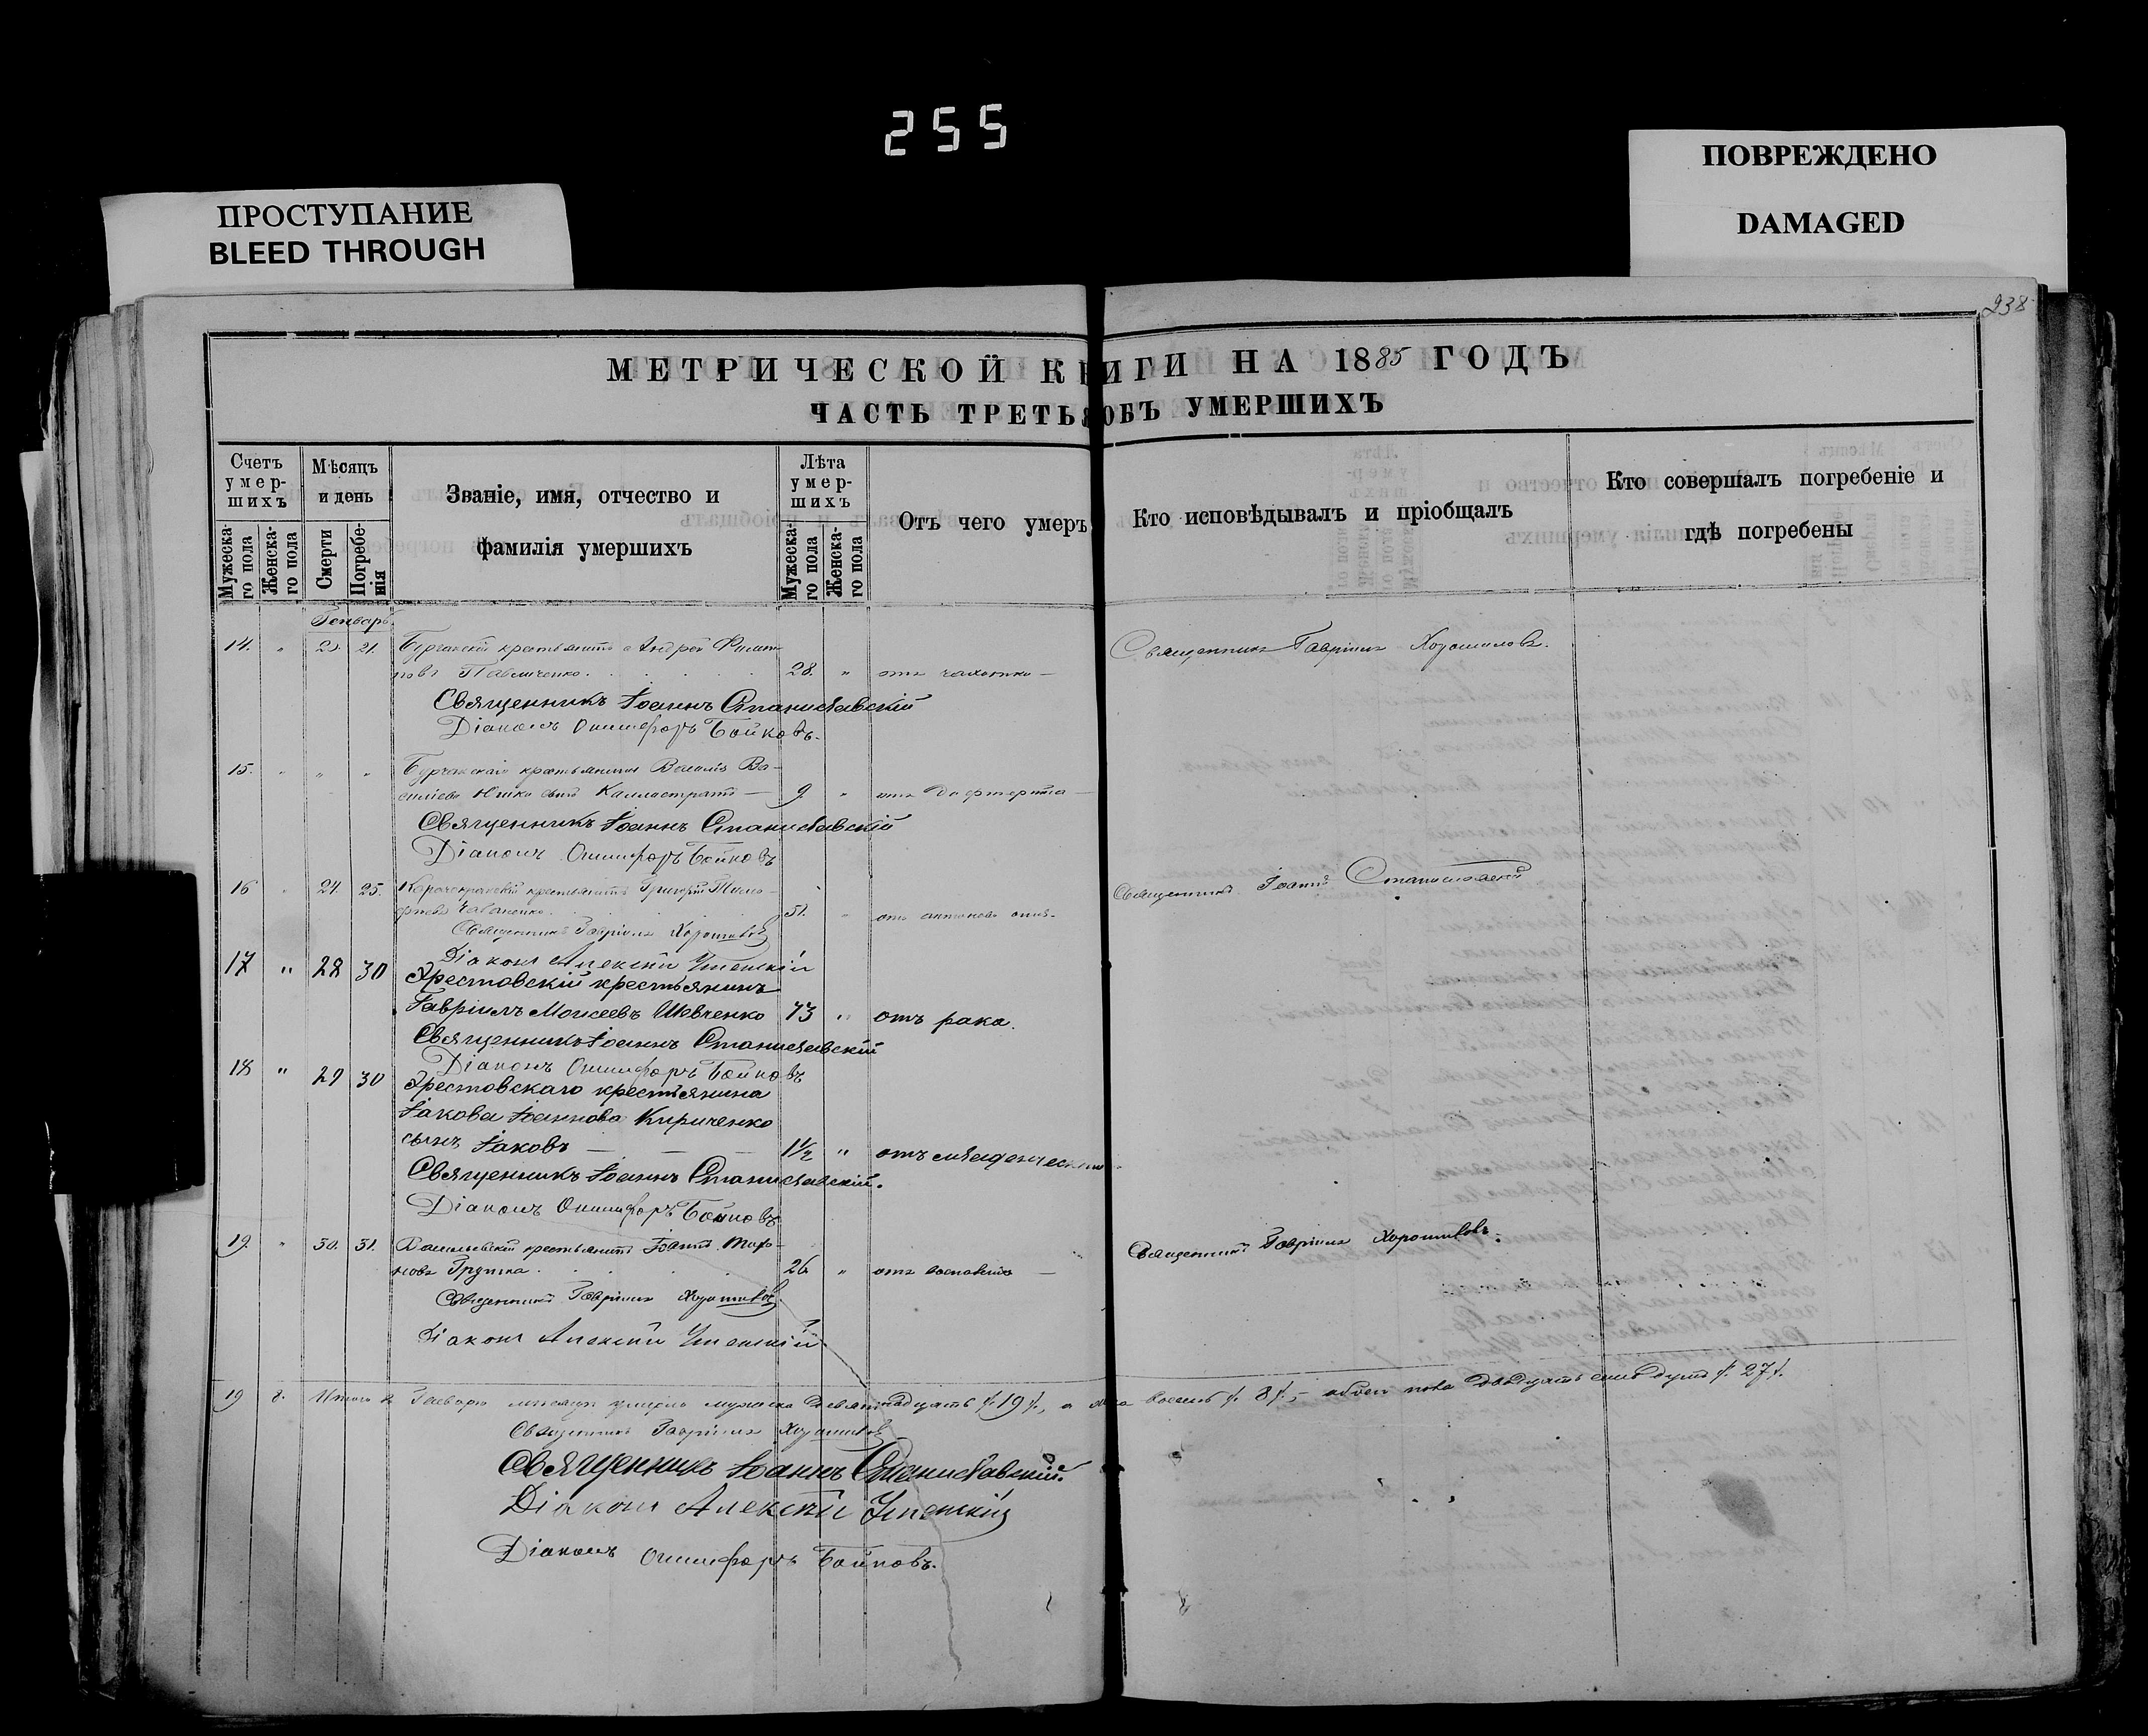 255
ПРОСТУПАНИЕ
BLEED THROUGH
ПОВРЕЖДЕНО
DAMAGED
238
МЕТРИЧЕСКОЙ КНИГИ НА 1885 ГОДЪ
ЧАСТЬ ТРЕТЬЯ ОБЪ УМЕРШИХЪ
Счетъ умер-шихъ
Мужеска-го пола
Женска-го пола
Мѣсяцъ и день
Смерти
Погребе-нія
Званіе, имя, отчество и
фамилія умершихъ
Лѣта умер-шихъ
Мужеска-го пола
Женска-го пола
Отъ чего умеръ
Кто исповѣдывалъ и пріобщалъ
Кто совершалъ погребеніе и
гдѣ погребены
Генварь
14. " 21. крестьянинъ Андрей Филип- Священникъ Гавріилъ Хорошиловъ.
повъ Павличенко. 28. " отъ чахотки —
Священникъ Іоаннъ Станиславскій
Діаконъ Онисифоръ Бойковъ.
15. " " " Бурчакскаго крестьянина Василія Ва-
силіева сынъ Каллистратъ — 9. " отъ дифтерита —
Священникъ Іоаннъ Станиславскій
Діаконъ Онисифоръ Бойковъ
16 " 24. 25. крестьянинъ Григорій Тимо- Священникъ Іоаннъ Станиславскій
феевъ 51. " отъ антонова огня.
Священникъ Гавріилъ Хорошиловъ
Діаконъ Алексій Успенскій
17 " 28 30 Эрестовскій крестьянинъ
Гавріилъ Моисеевъ Шевченко 73 " отъ рака.
Священникъ Іоаннъ Станиславскій
Діаконъ Онисифоръ Бойковъ
18 " 29 30 Эрестовскаго крестьянина
Іакова Іоаннова Кириченко
сынъ Іаковъ — — — 1½ " отъ младенческой
Священникъ Іоаннъ Станиславскій.
Діаконъ Онисифоръ Бойковъ
19. " 30. 31. Васильевскій крестьянинъ Іоаннъ Священникъ Гавріилъ Хорошиловъ.
26 " отъ воспаленія —
Священникъ Гавріилъ Хорошиловъ.
Діаконъ Алексій Успенскій
19 8. Итого въ Генварѣ мѣсяцѣ умерло мужеска девятнадцать /:19/:, а восемь /:8/:, — обоего пола двадцать семь душъ /:27/:.
Священникъ Гавріилъ Хорошиловъ
Священникъ Іоаннъ Станиславскій
Діаконъ Алексій Успенскій
Діаконъ Онисифоръ Бойковъ.